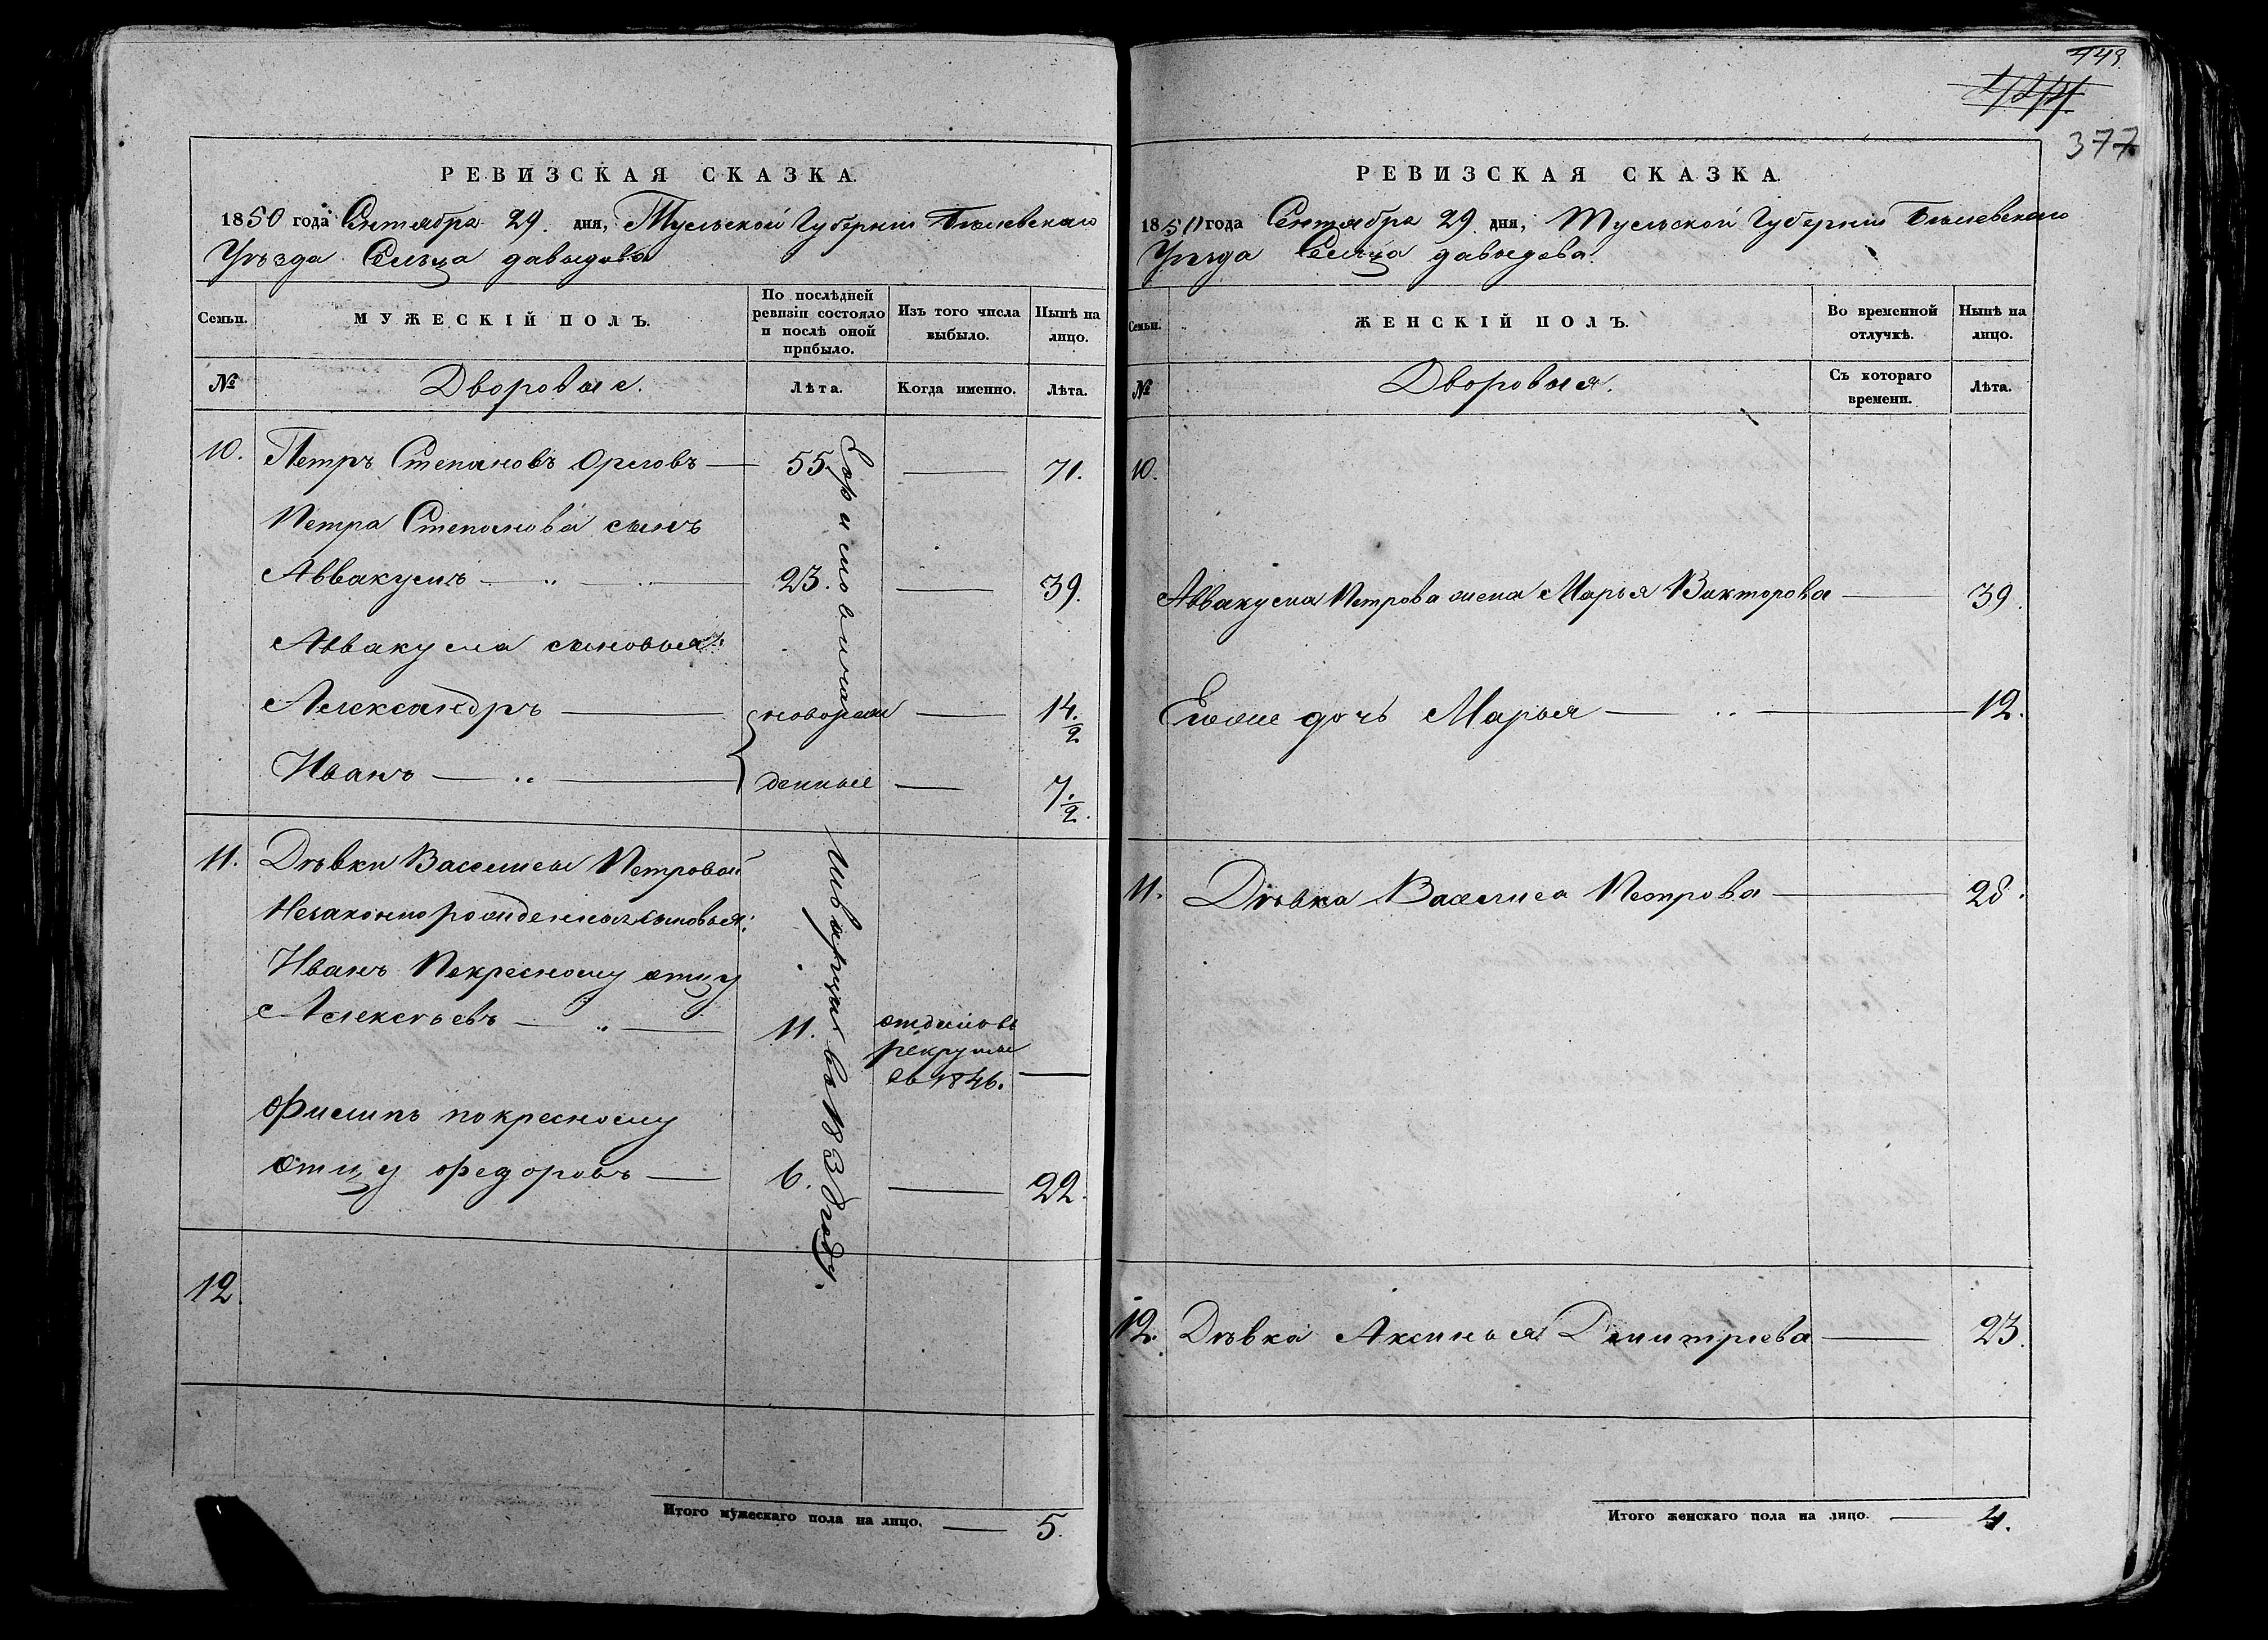 РЕВИЗСКАЯ СКАЗКА.
1850 года Сентября 29. дня, Тульской Губерніи Бѣлевскаго
Уѣзда Сельца давыдова
Семьи.
МУЖЕСКІЙ ПОЛЪ.
По послѣдней ревизіи состояло и послѣ оной прибыло.
Изъ того числа выбыло.
Нынѣ на лицо.
№
Дворовые.
Лѣта.
Когда именно.
Лѣта.
10. Петръ Степановъ Орловъ — 55. — 71.
Петра Степанова сынъ
Аввакумъ — „ — 23. — 39.
Аввакума сыновья:
Александръ — новорож — 14. 1/2
Иванъ — „ — денные — 7. 1/2
11. Дѣвки Василисы Петровой
Незаконно рожденныя сыновья:
Иванъ Покресному отцу
Алексѣевъ — „ — 11. отданъ въ
рекруты
въ 1846. —
Филипъ покресному
отцу Федоровъ — 6. — 22.
въ 183 году.
12
Итого мужескаго пола на лицо. — 5.
443.
377
РЕВИЗСКАЯ СКАЗКА.
1850 года Сентября 29. дня, Тульской Губерніи Бѣлевскаго
Уѣзда Сельца давыдова.
Семьи.
ЖЕНСКІЙ ПОЛЪ.
Во временной отлучкѣ.
Нынѣ на лицо.
№
Дворовыя.
Съ котораго времени.
Лѣта.
10.
Аввакума Петрова жена Марья Викторова — 39.
Егоже дочь Марья — „ — 12.
11. Дѣвка Василиса Петрова — 28.
12. Дѣвка Аксинья Дмитріева — 23.
Итого женскаго пола на лицо. — 4.